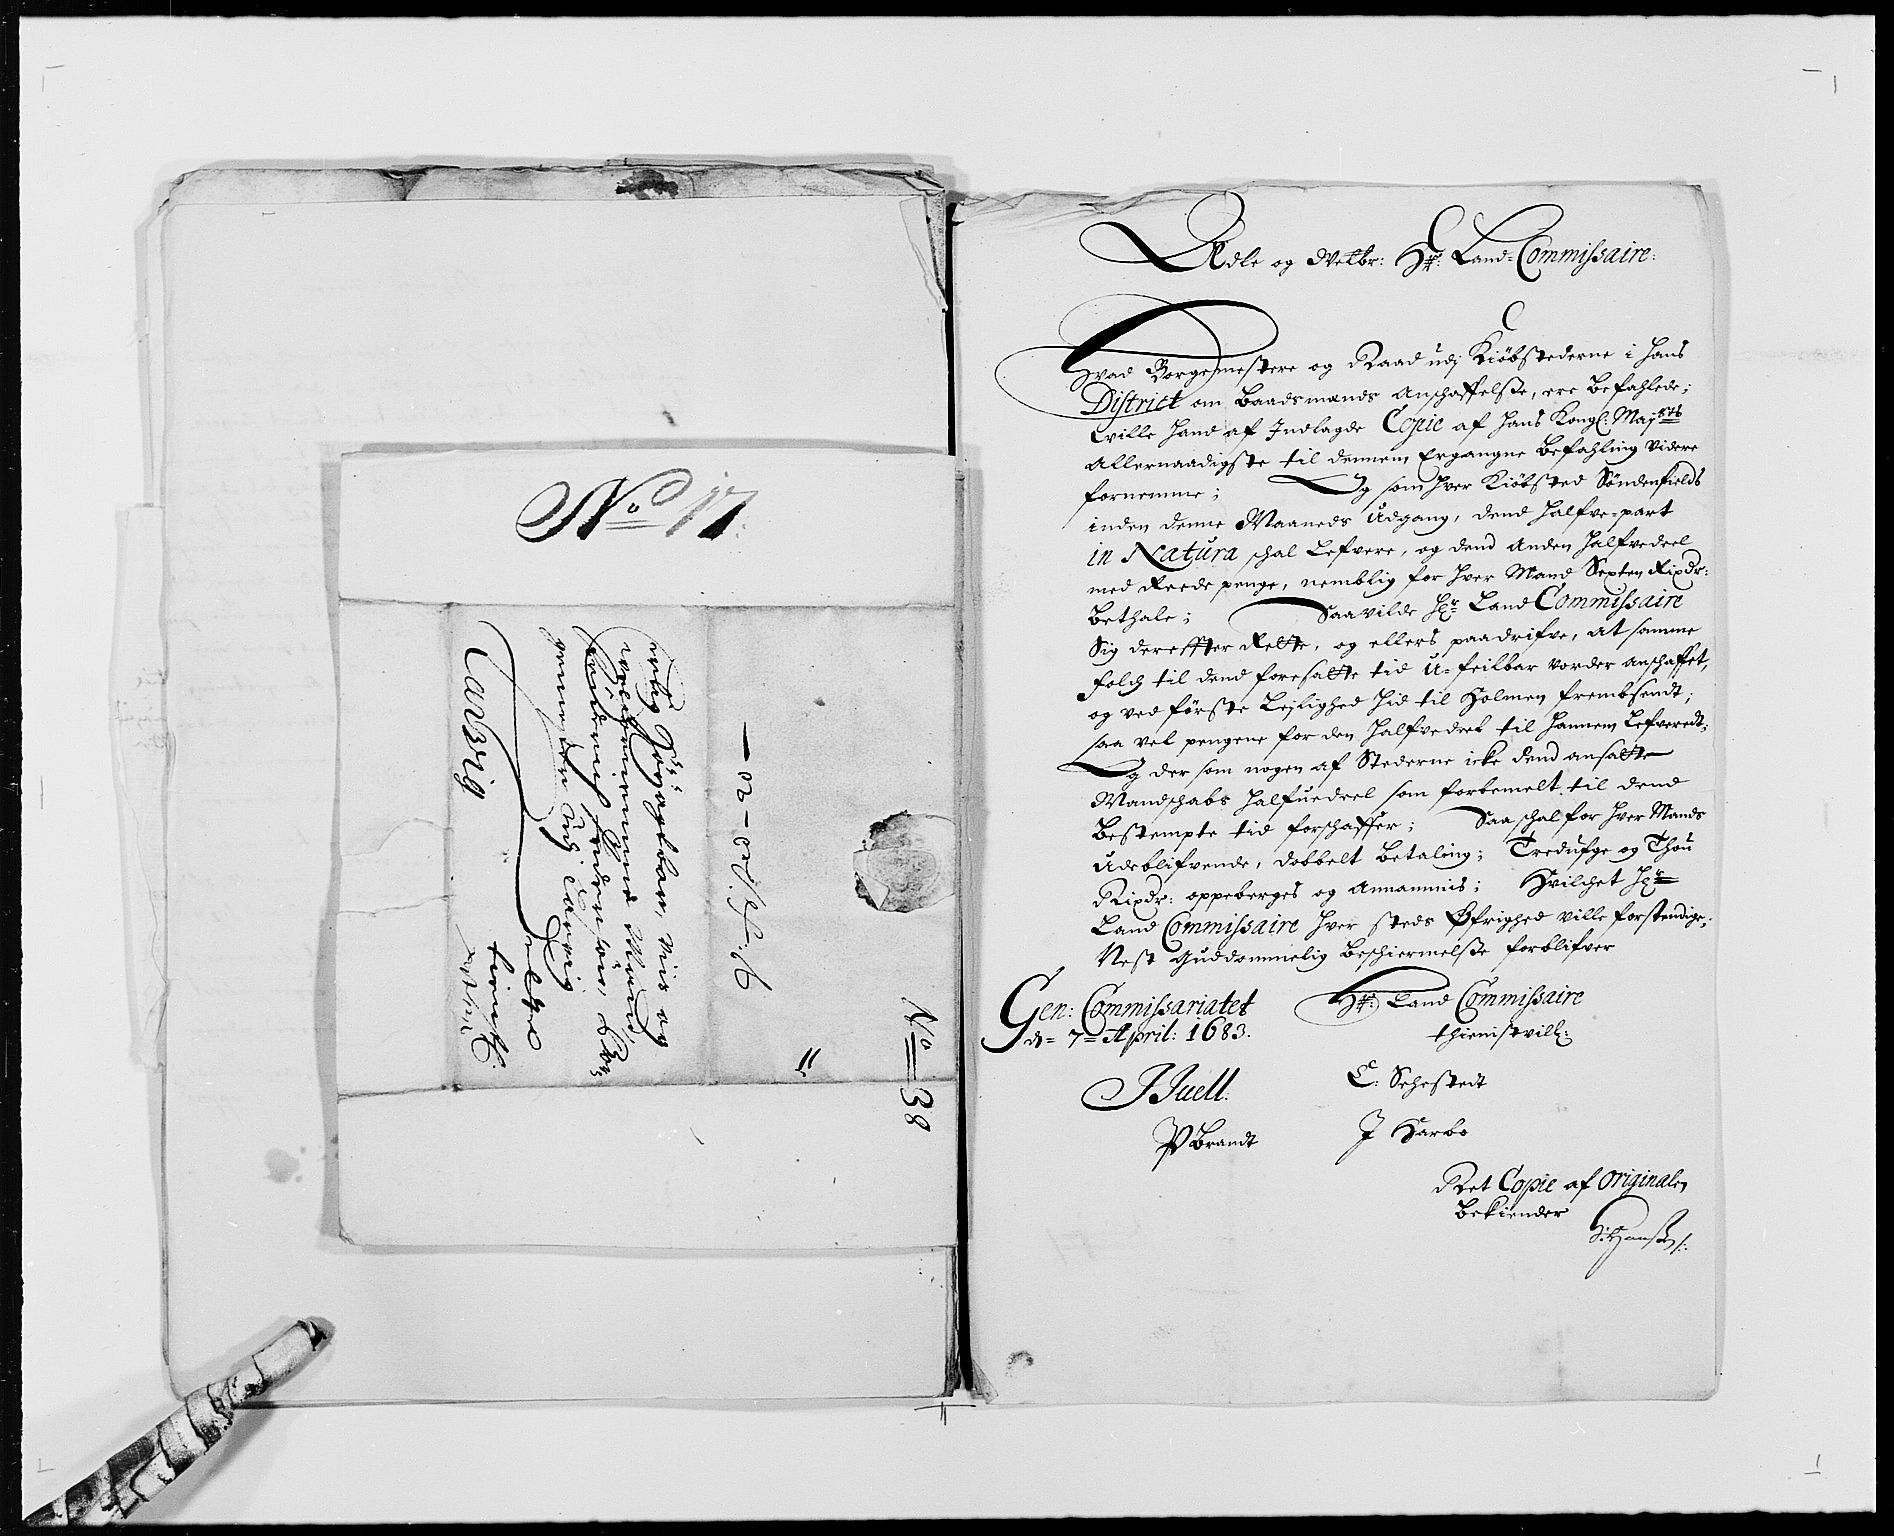 No 17.
No 38
Larvig
Ædle og Velbr: Hr: Land-Commissaire:
Hvad Borgemestere og Raad udj Kiöbstederne i hans
District om Baadsmænds Anschaffelsse, ere befahlede;
Ville hand af Indlagde Copie af Hans Kongl: Majsts
Allernaadigste til dennem Ergangne befahling videre
fornemme; Og som hver Kiöbsted Söndenfields
inden denne Maaneds Udgang, dend halfve-part
in Natura schal Lefvere, og dend Anden halfvedeel
med Reede penge, nemblig for hver Mand Sexten Rixdr:
bethale; Saa vilde Hr Land Commissaire
Sig dereffter Rette, og ellers paadrifve, at samme
folch til dend foresatte tid u-feilbar vorder anschaffet,
og ved förste Lejlighed hid til Holmen frembsendt;
saa vel pengene for den halfvedeel til hannem Lefveredt;
Og der som nogen af Stederne icke dend ansatte
Mandschabs halfuedeel som forbemelt til dend
bestempte tid forschaffer; Saa schal for hver Mands
Udeblifvende, dobbelt betaling; Tredufge og Thou
Rixdr: oppeberges og Annammis; Hvilchet Hr
Land Commissaire hver steds Öfrighed ville forstendige;
Nest Guddommelig beschiermelsse forblifver
Gen: Commissariatet
d= 7= April: 1683.
Hr: Land Commissaire
thienistvill:
J Juell.
C: Sehestedt
P Brandt
J Harbo
Ret Copie af Originalen
bekiender
H: Hanss